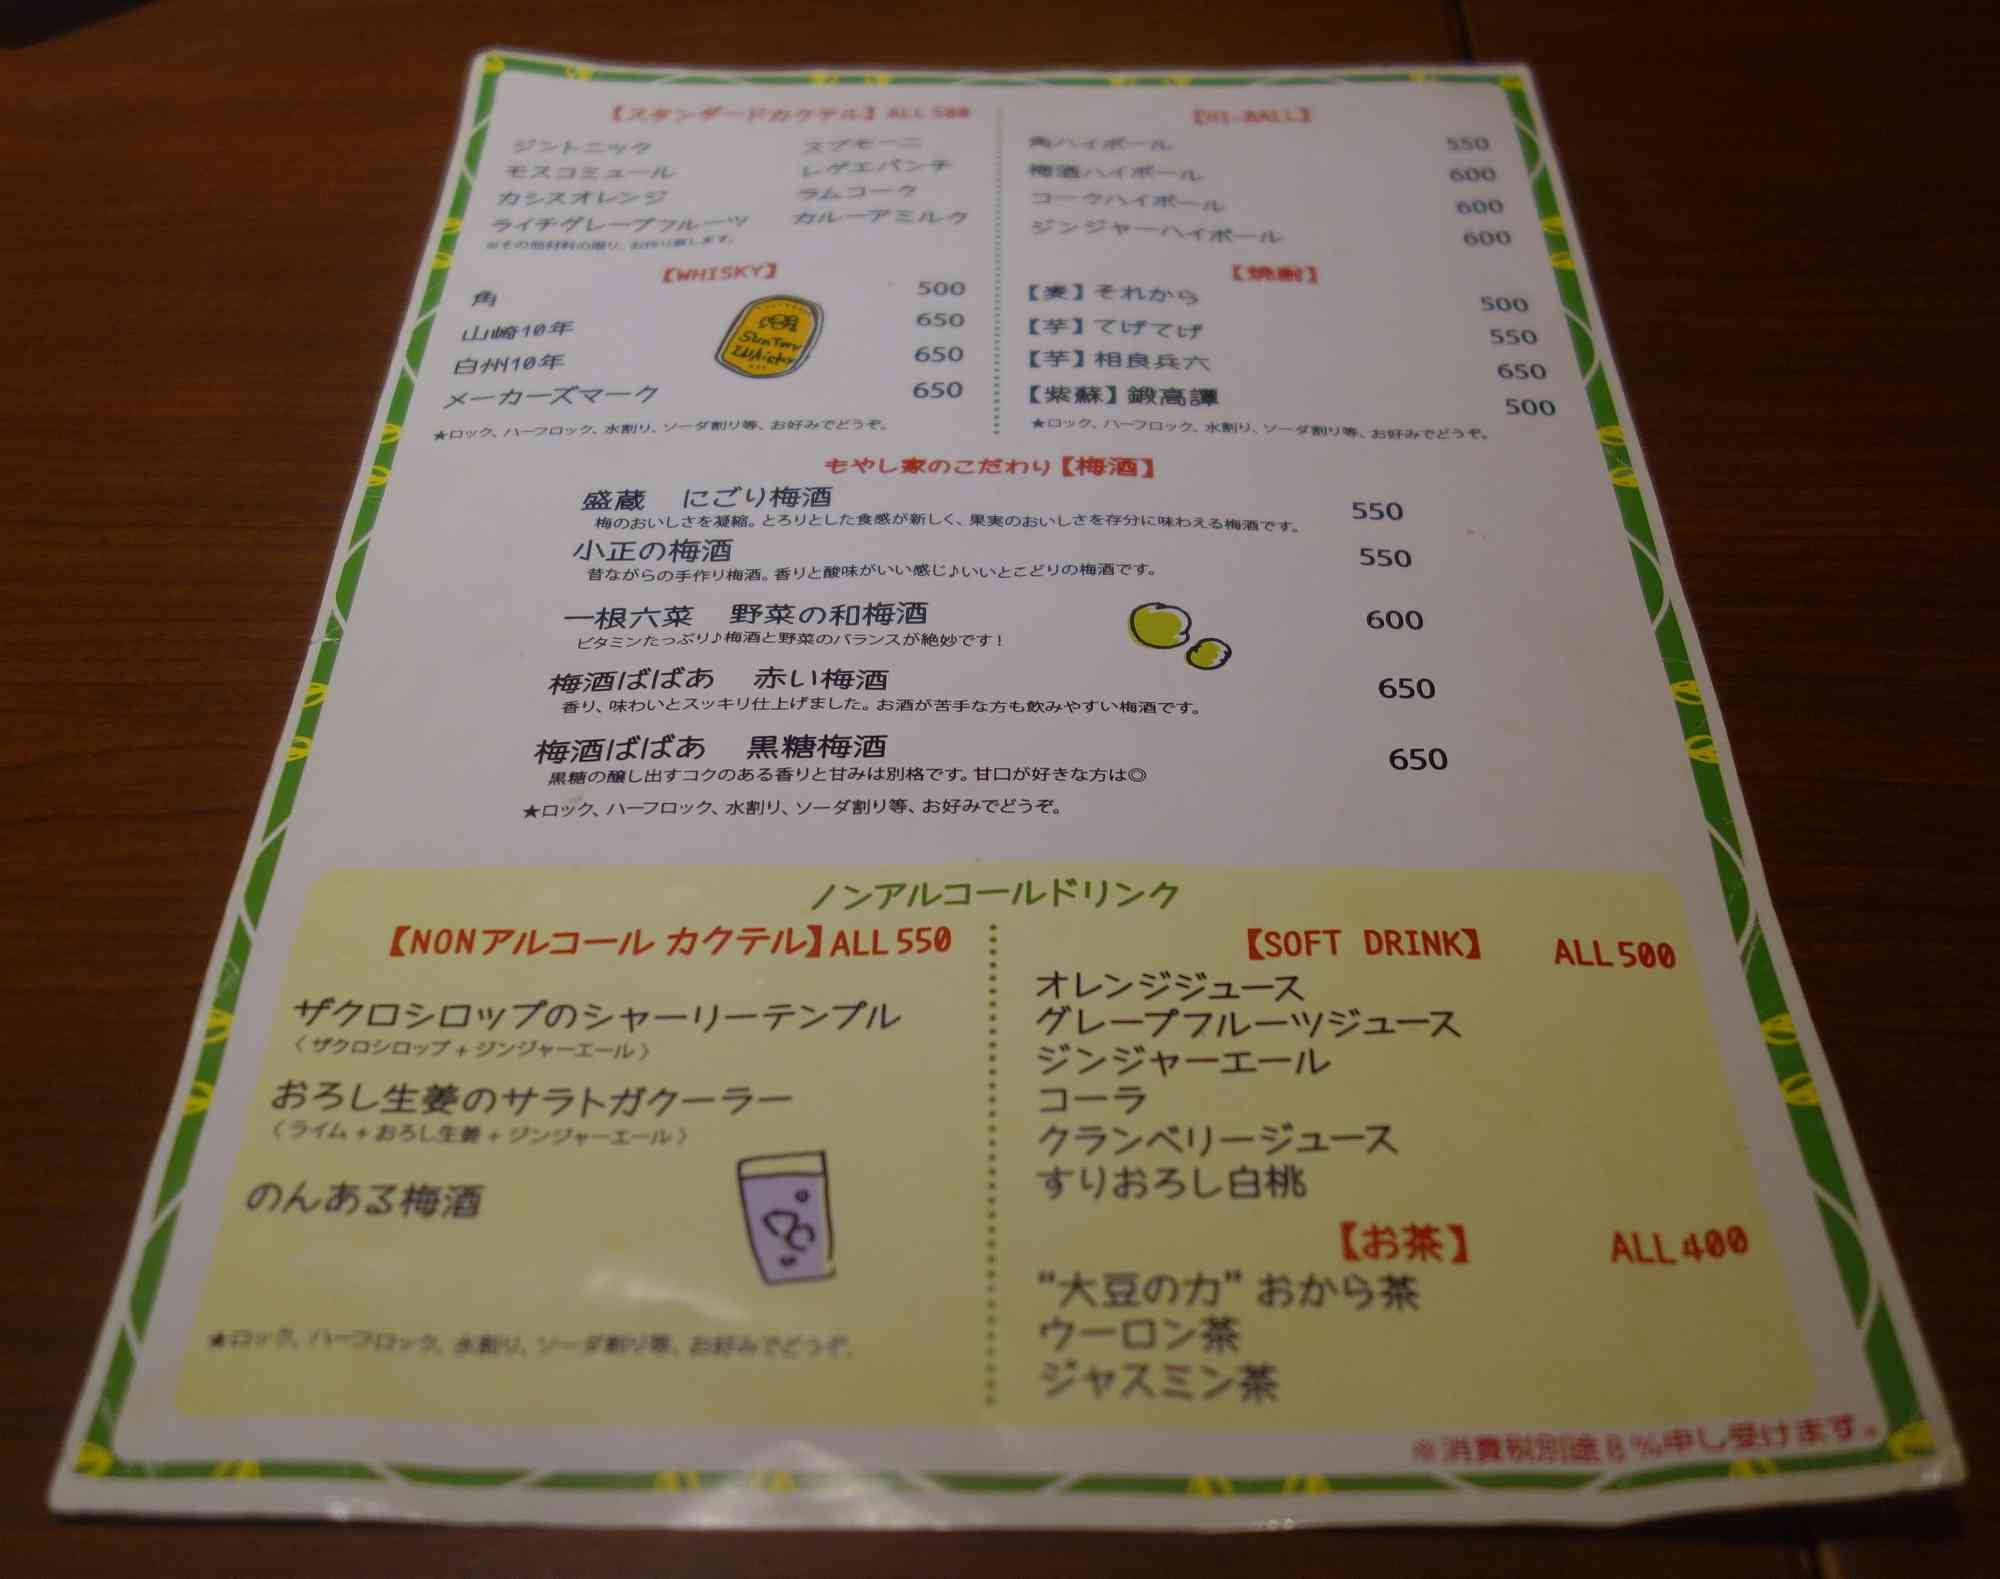 【スタンダードカクテル】ALL 500
ジントニック
スプモーニ
モスコミュール
レゲエパンチ
カシスオレンジ
ラムコーク
ライチグレープフルーツ
カルーアミルク
※その他材料の限り、お作り致します。
【WHISKY】
角 500
山崎10年 650
白州10年 650
メーカーズマーク 650
Suntory
Whisky
★ロック、ハーフロック、水割り、ソーダ割り等、お好みでどうぞ。
【HI-BALL】
角ハイボール 550
梅酒ハイボール 600
コークハイボール 600
ジンジャーハイボール 600
【焼酎】
【麦】それから 500
【芋】てげてげ 550
【芋】相良兵六 650
【紫蘇】鍛高譚 500
★ロック、ハーフロック、水割り、ソーダ割り等、お好みでどうぞ。
もやし家のこだわり【梅酒】
盛蔵 にごり梅酒 550
梅のおいしさを凝縮。とろりとした食感が新しく、果実のおいしさを存分に味わえる梅酒です。
小正の梅酒 550
昔ながらの手作り梅酒。香りと酸味がいい感じ♪いいとこどりの梅酒です。
一根六菜 野菜の和梅酒 600
ビタミンたっぷり♪梅酒と野菜のバランスが絶妙です！
梅酒ばばあ 赤い梅酒 650
香り、味わいとスッキリ仕上げました。お酒が苦手な方も飲みやすい梅酒です。
梅酒ばばあ 黒糖梅酒 650
黒糖の醸し出すコクのある香りと甘みは別格です。甘口が好きな方は◎
★ロック、ハーフロック、水割り、ソーダ割り等、お好みでどうぞ。
ノンアルコールドリンク
【NONアルコール カクテル】ALL 550
ザクロシロップのシャーリーテンプル
〈 ザクロシロップ + ジンジャーエール 〉
おろし生姜のサラトガクーラー
〈 ライム + おろし生姜 + ジンジャーエール 〉
のんある梅酒
★ロック、ハーフロック、水割り、ソーダ割り等、お好みでどうぞ。
【SOFT DRINK】 ALL 500
オレンジジュース
グレープフルーツジュース
ジンジャーエール
コーラ
クランベリージュース
すりおろし白桃
【お茶】 ALL 400
"大豆の力" おから茶
ウーロン茶
ジャスミン茶
※消費税別途8%申し受けます。